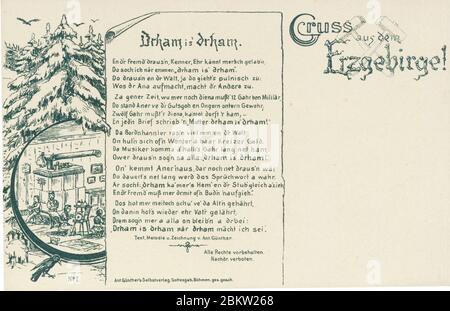 Drham is' drham.
Gruss aus dem
Erzgebirge!
En dr Fremd draus'n, Kenner, Ehr kännt merlich gelabn,
Do soch ich när emmer, drham is' drham.
Do draus'n en dr Walt, ja do gieht's pulnisch zu:
Wos dr Ana aufmacht, macht dr Andere zu.
Za gener Zeit, wu mer noch diena mußt' 12 Gahr ben Militär,
Do stand Aner ve di Gutsgah en Ongern untern Gewehr,
Zwölf Gahr mußt'r diena, kaant derft'r ham,
En jedn Brief schrieb'n, Mutter drham is' drham!
Da Bardshannler ras'n viel mm en dr Walt,
On huln sich of'n Wonteria baar Kreizer Gald.
Da Musiker komma d'halb'e Gahr lang net ham,
Ower draus'n sogn sa alla: drham is' drham!
On' kemmt Aner haus, dar noch net draus'n war,
Do dauert's net lang werd dos Sprüchwort a wahr.
Ar soch: drham ka'mer's Ham' en dr Stub gleich aziehn
Dos hot mer meitoch schu' ve da Altn gehährt,
On danin hot's wieder ehr Vatr gelährt,
Drem sogn mer a alla on bleib'n a drbei:
Drham is drham när drham mächt ich sei.
Text, Melodie u. Zeichnung v. Ant. Günther.
Alle Rechte vorbehalten.
Nachdr. verboten.
Ant. Günther's Selbstverlag, Gottesgab, Böhmen, ges. gesch.